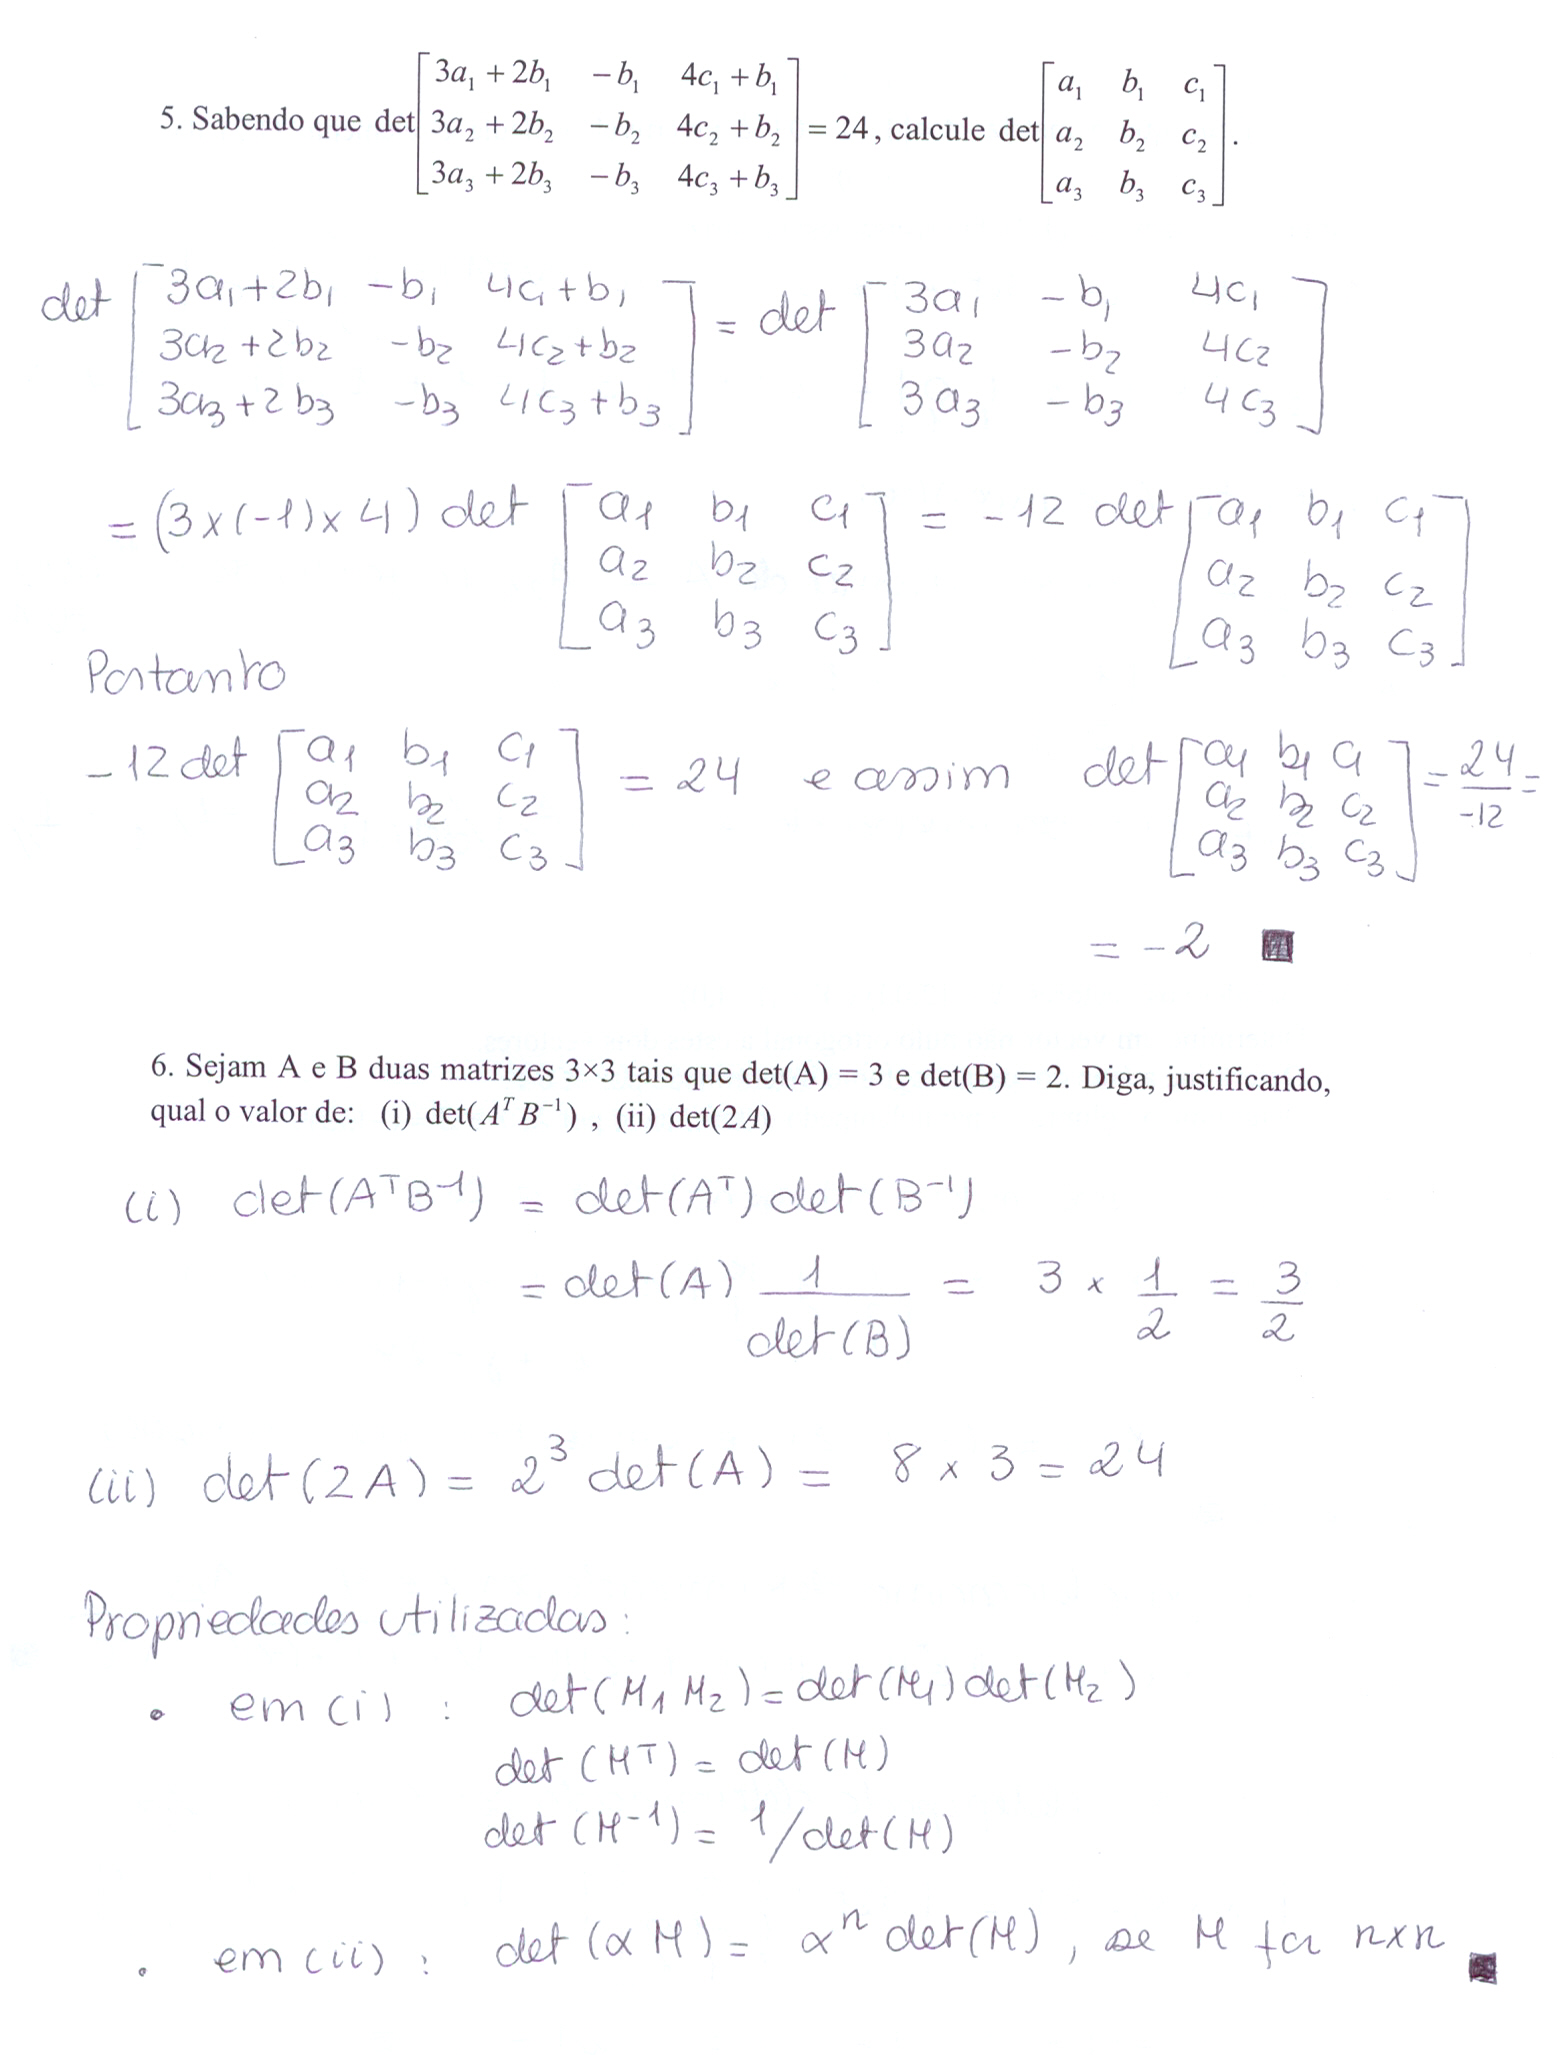 5. Sabendo que det [3a₁ + 2b₁  −b₁  4c₁ + b₁; 3a₂ + 2b₂  −b₂  4c₂ + b₂; 3a₃ + 2b₃  −b₃  4c₃ + b₃] = 24, calcule det [a₁ b₁ c₁; a₂ b₂ c₂; a₃ b₃ c₃].
det [3a₁+2b₁  −b₁  4c₁+b₁; 3a₂+2b₂  −b₂  4c₂+b₂; 3a₃+2b₃  −b₃  4c₃+b₃] = det [3a₁  −b₁  4c₁; 3a₂  −b₂  4c₂; 3a₃  −b₃  4c₃]
= (3×(−1)×4) det [a₁ b₁ c₁; a₂ b₂ c₂; a₃ b₃ c₃] = −12 det [a₁ b₁ c₁; a₂ b₂ c₂; a₃ b₃ c₃]
Portanto
−12 det [a₁ b₁ c₁; a₂ b₂ c₂; a₃ b₃ c₃] = 24 e assim det [a₁ b₁ c₁; a₂ b₂ c₂; a₃ b₃ c₃] = 24/−12 =
= −2 ■
6. Sejam A e B duas matrizes 3×3 tais que det(A) = 3 e det(B) = 2. Diga, justificando,
qual o valor de: (i) det(AᵀB⁻¹) , (ii) det(2A)
(i) det(AᵀB⁻¹) = det(Aᵀ) det(B⁻¹)
= det(A) 1/det(B) = 3 × 1/2 = 3/2
(ii) det(2A) = 2³ det(A) = 8 × 3 = 24
Propriedades utilizadas:
• em (i) : det(M₁ M₂) = det(M₁) det(M₂)
det(Mᵀ) = det(M)
det(M⁻¹) = 1/det(M)
• em (ii) : det(α M) = αⁿ det(M), se M for n×n ■